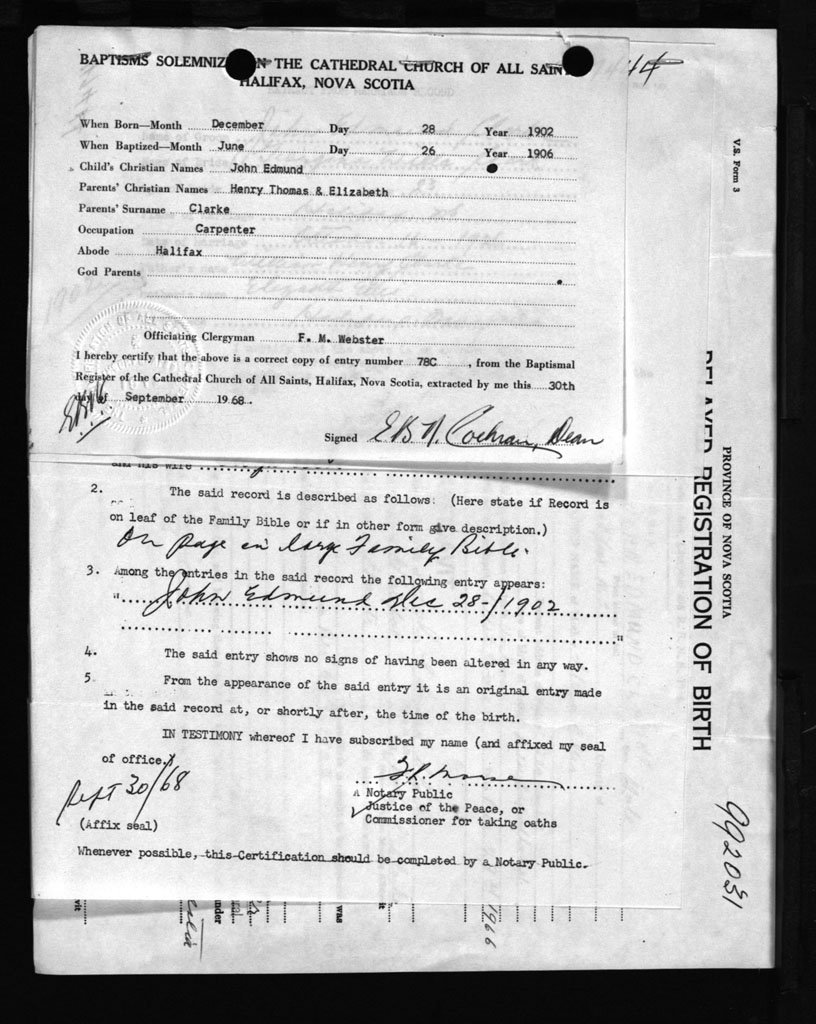 BAPTISMS SOLEMNIZ N THE CATHEDRAL CHURCH OF ALL SAIN
HALIFAX, NOVA SCOTIA
When Born—Month December Day 28 Year 1902
When Baptized—Month June Day 26 Year 1906
Child's Christian Names John Edmund
Parents' Christian Names Henry Thomas & Elizabeth
Parents' Surname Clarke
Occupation Carpenter
Abode Halifax
God Parents
Officiating Clergyman F. M. Webster
I hereby certify that the above is a correct copy of entry number 78C, from the Baptismal
Register of the Cathedral Church of All Saints, Halifax, Nova Scotia, extracted by me this 30th
day of September 1968.
Signed E B N. Cochran, Dean
and his wife
2. The said record is described as follows: (Here state if Record is
on leaf of the Family Bible or if in other form give description.)
On page in large Family Bible.
3. Among the entries in the said record the following entry appears:
" John Edmund Dec 28-/1902
"
4. The said entry shows no signs of having been altered in any way.
5. From the appearance of the said entry it is an original entry made
in the said record at, or shortly after, the time of the birth.
IN TESTIMONY whereof I have subscribed my name (and affixed my seal
of office.)
Sept 30/68
A Notary Public
Justice of the Peace, or
Commissioner for taking oaths
(Affix seal)
Whenever possible, this Certification should be completed by a Notary Public.
V.S. Form 3
PROVINCE OF NOVA SCOTIA
DELAYED REGISTRATION OF BIRTH
992031
under
was
it
1966